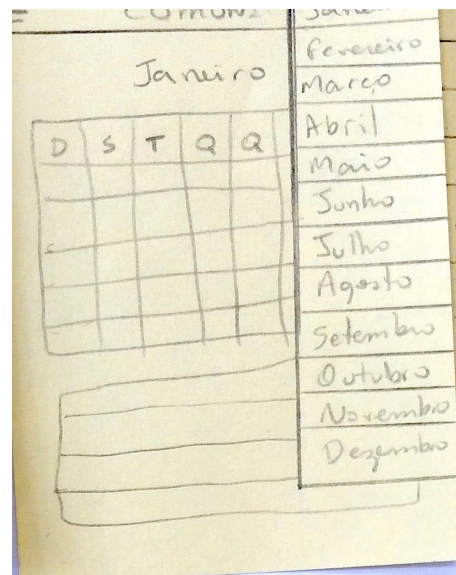 COMUNI
Janeiro
Janeiro
D S T Q Q
Fevereiro
Março
Abril
Maio
Junho
Julho
Agosto
Setembro
Outubro
Novembro
Dezembro